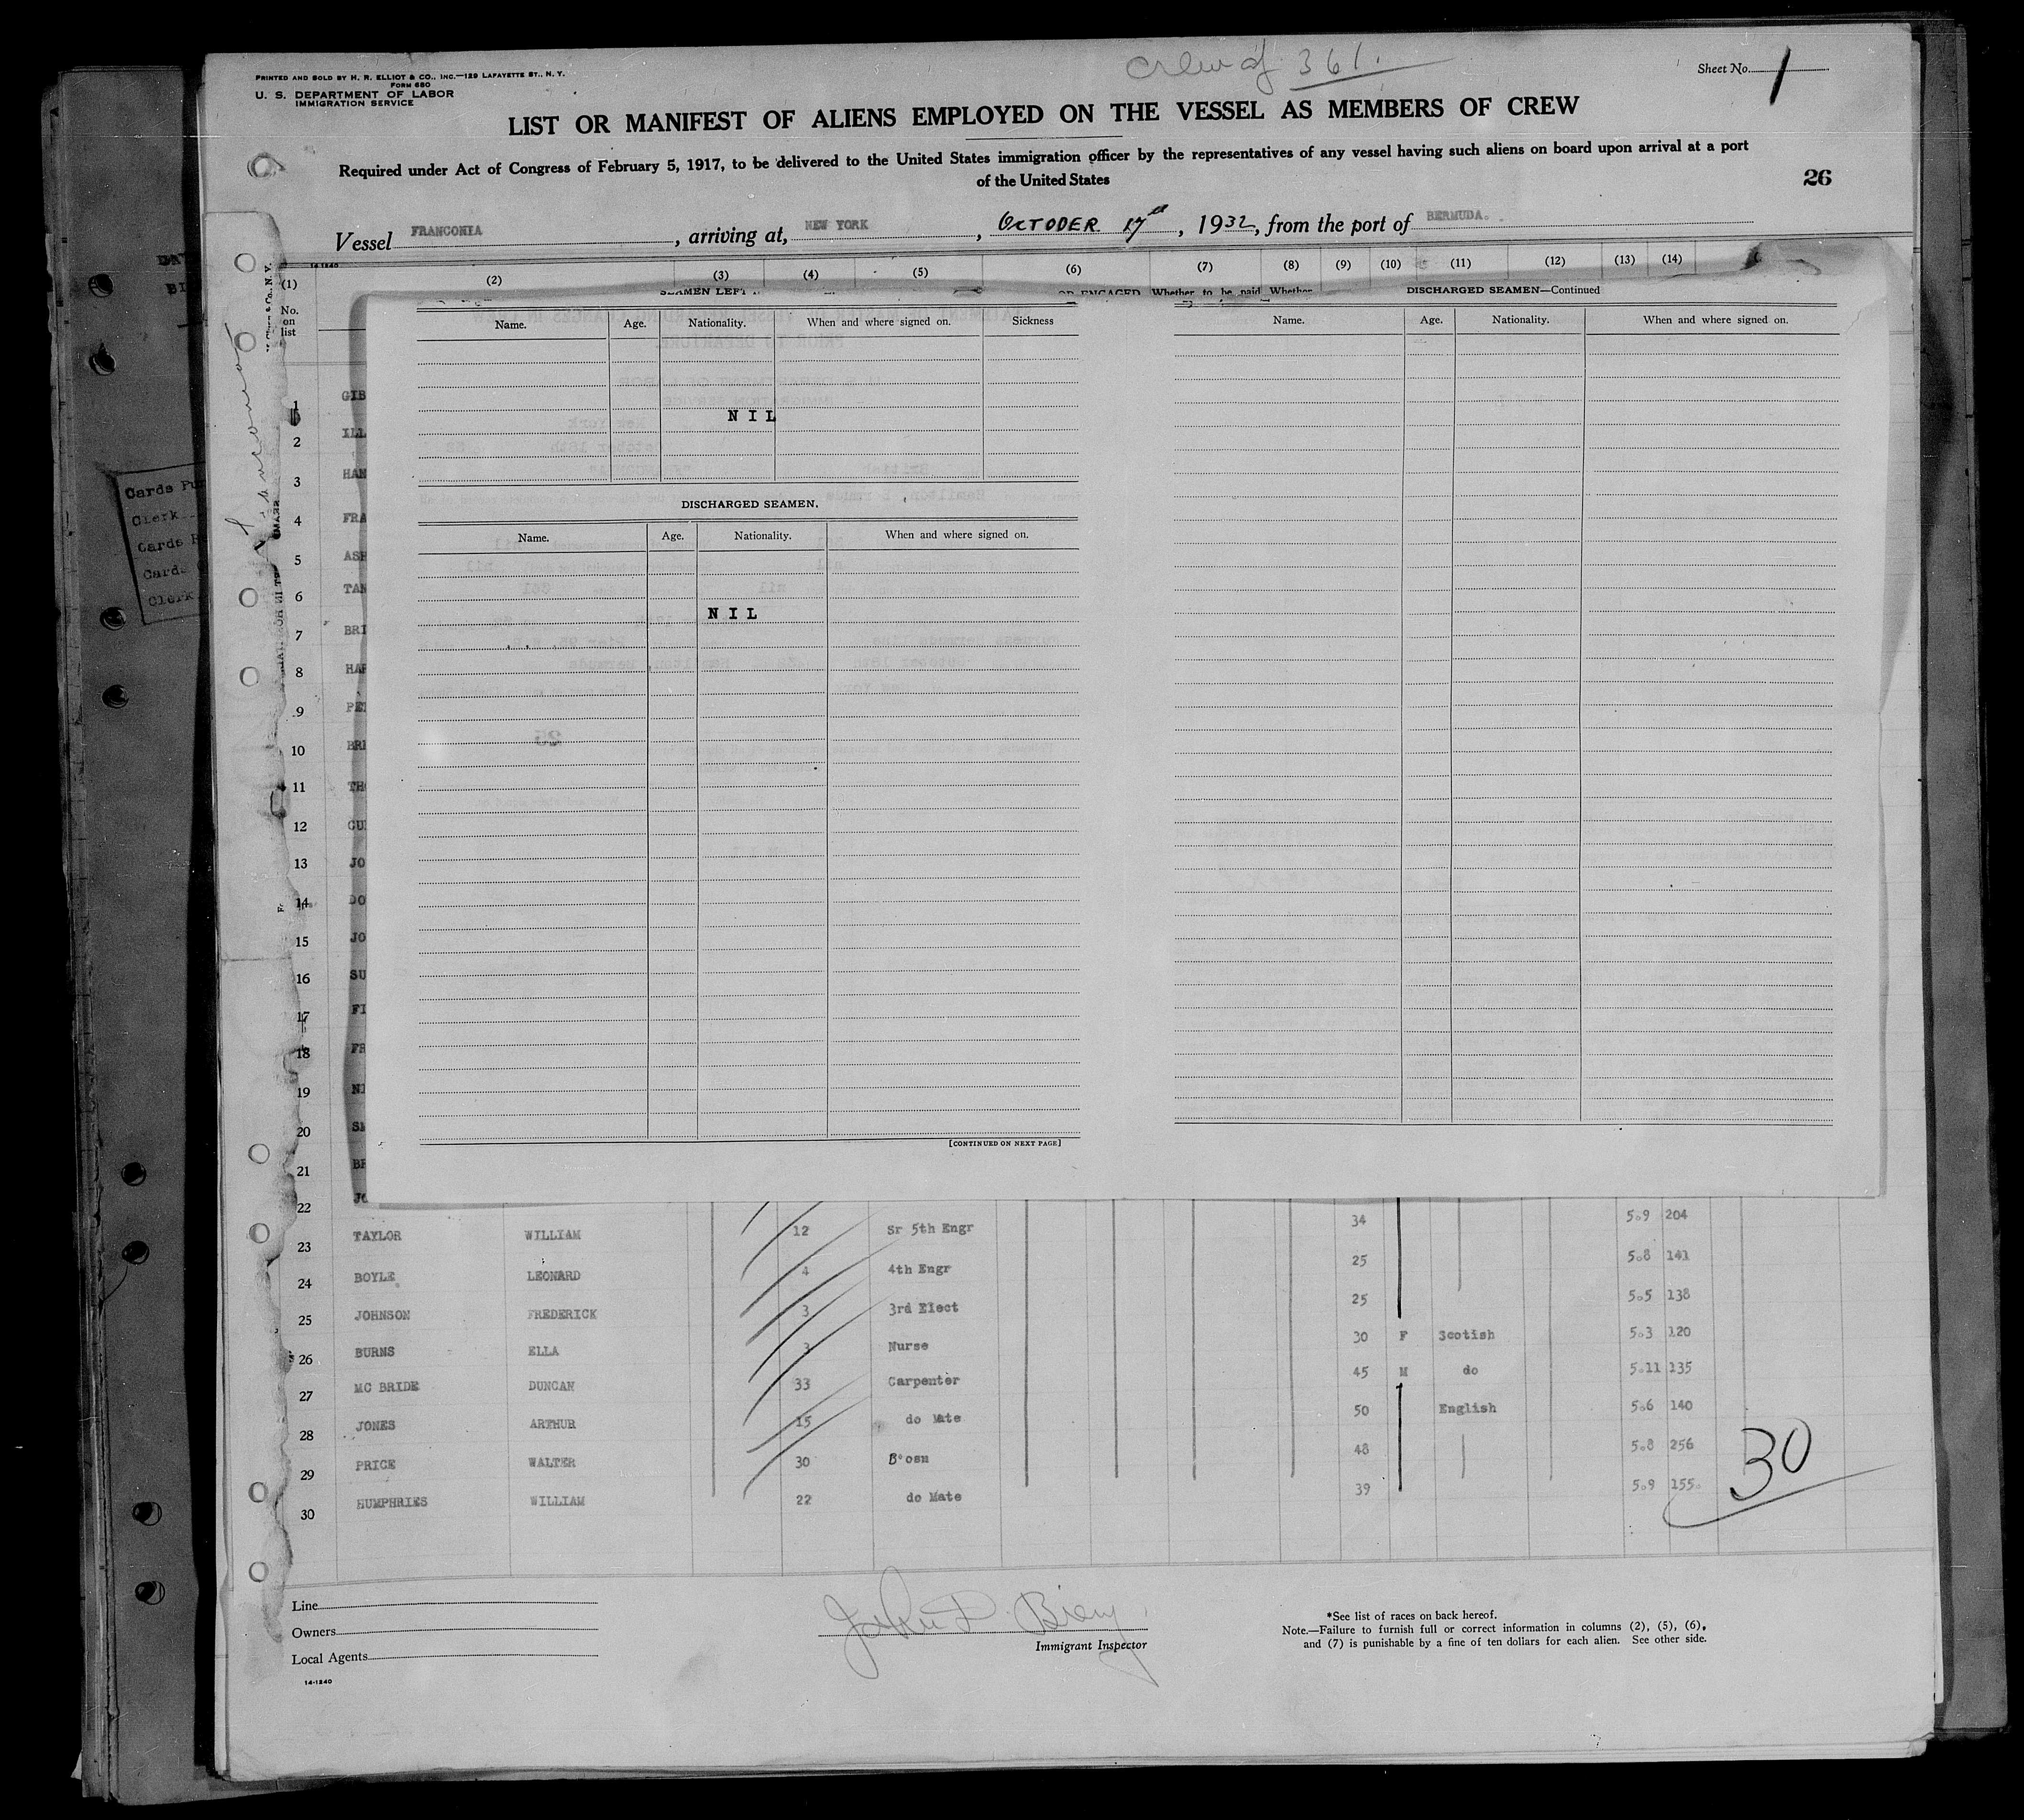 PRINTED AND SOLD BY H. R. ELLIOT & CO., INC.—129 LAFAYETTE ST., N. Y.
FORM 680
U. S. DEPARTMENT OF LABOR
IMMIGRATION SERVICE
Crew of 361.
Sheet No. 1
LIST OR MANIFEST OF ALIENS EMPLOYED ON THE VESSEL AS MEMBERS OF CREW
Required under Act of Congress of February 5, 1917, to be delivered to the United States immigration officer by the representatives of any vessel having such aliens on board upon arrival at a port
of the United States
26
Vessel FRANCONIA, arriving at, NEW YORK, OCTOBER 17th, 1932, from the port of BERMUDA.
14-1240
(1) (2) (3) (4) (5) (6) (7) (8) (9) (10) (11) (12) (13) (14)
SEAMEN LEFT OR ENGAGED Whether to be paid Whether DISCHARGED SEAMEN—Continued
No. on list
Name. Age. Nationality. When and where signed on. Sickness
Name. Age. Nationality. When and where signed on.
N I L
DISCHARGED SEAMEN.
Name. Age. Nationality. When and where signed on.
N I L
[CONTINUED ON NEXT PAGE]
1 GIB
2 ILL
3 HAN
4 FRA
5 ASH
6 TAN
7 BRI
8 HAR
9 PE
10 BRI
11 TH
12 GU
13 JO
14 DO
15 JO
16 SU
17 FI
18 FR
19 NI
20 SM
21 BR
22 JO
23 TAYLOR WILLIAM 12 Sr 5th Engr 34 5.9 204
24 BOYLE LEONARD 4 4th Engr 25 5.8 141
25 JOHNSON FREDERICK 3 3rd Elect 25 5.5 138
26 BURNS ELLA 3 Nurse 30 F Scotish 5.3 120
27 MC BRIDE DUNCAN 33 Carpenter 45 M do 5.11 135
28 JONES ARTHUR 15 do Mate 50 English 5.6 140
29 PRICE WALTER 30 B'osn 48 5.8 256
30 HUMPHRIES WILLIAM 22 do Mate 39 5.9 155
30
Line
Owners
Local Agents
14-1240
Immigrant Inspector
*See list of races on back hereof.
Note.—Failure to furnish full or correct information in columns (2), (5), (6), and (7) is punishable by a fine of ten dollars for each alien. See other side.
Cards Pu
Clerk
Cards
Cards
Clerk